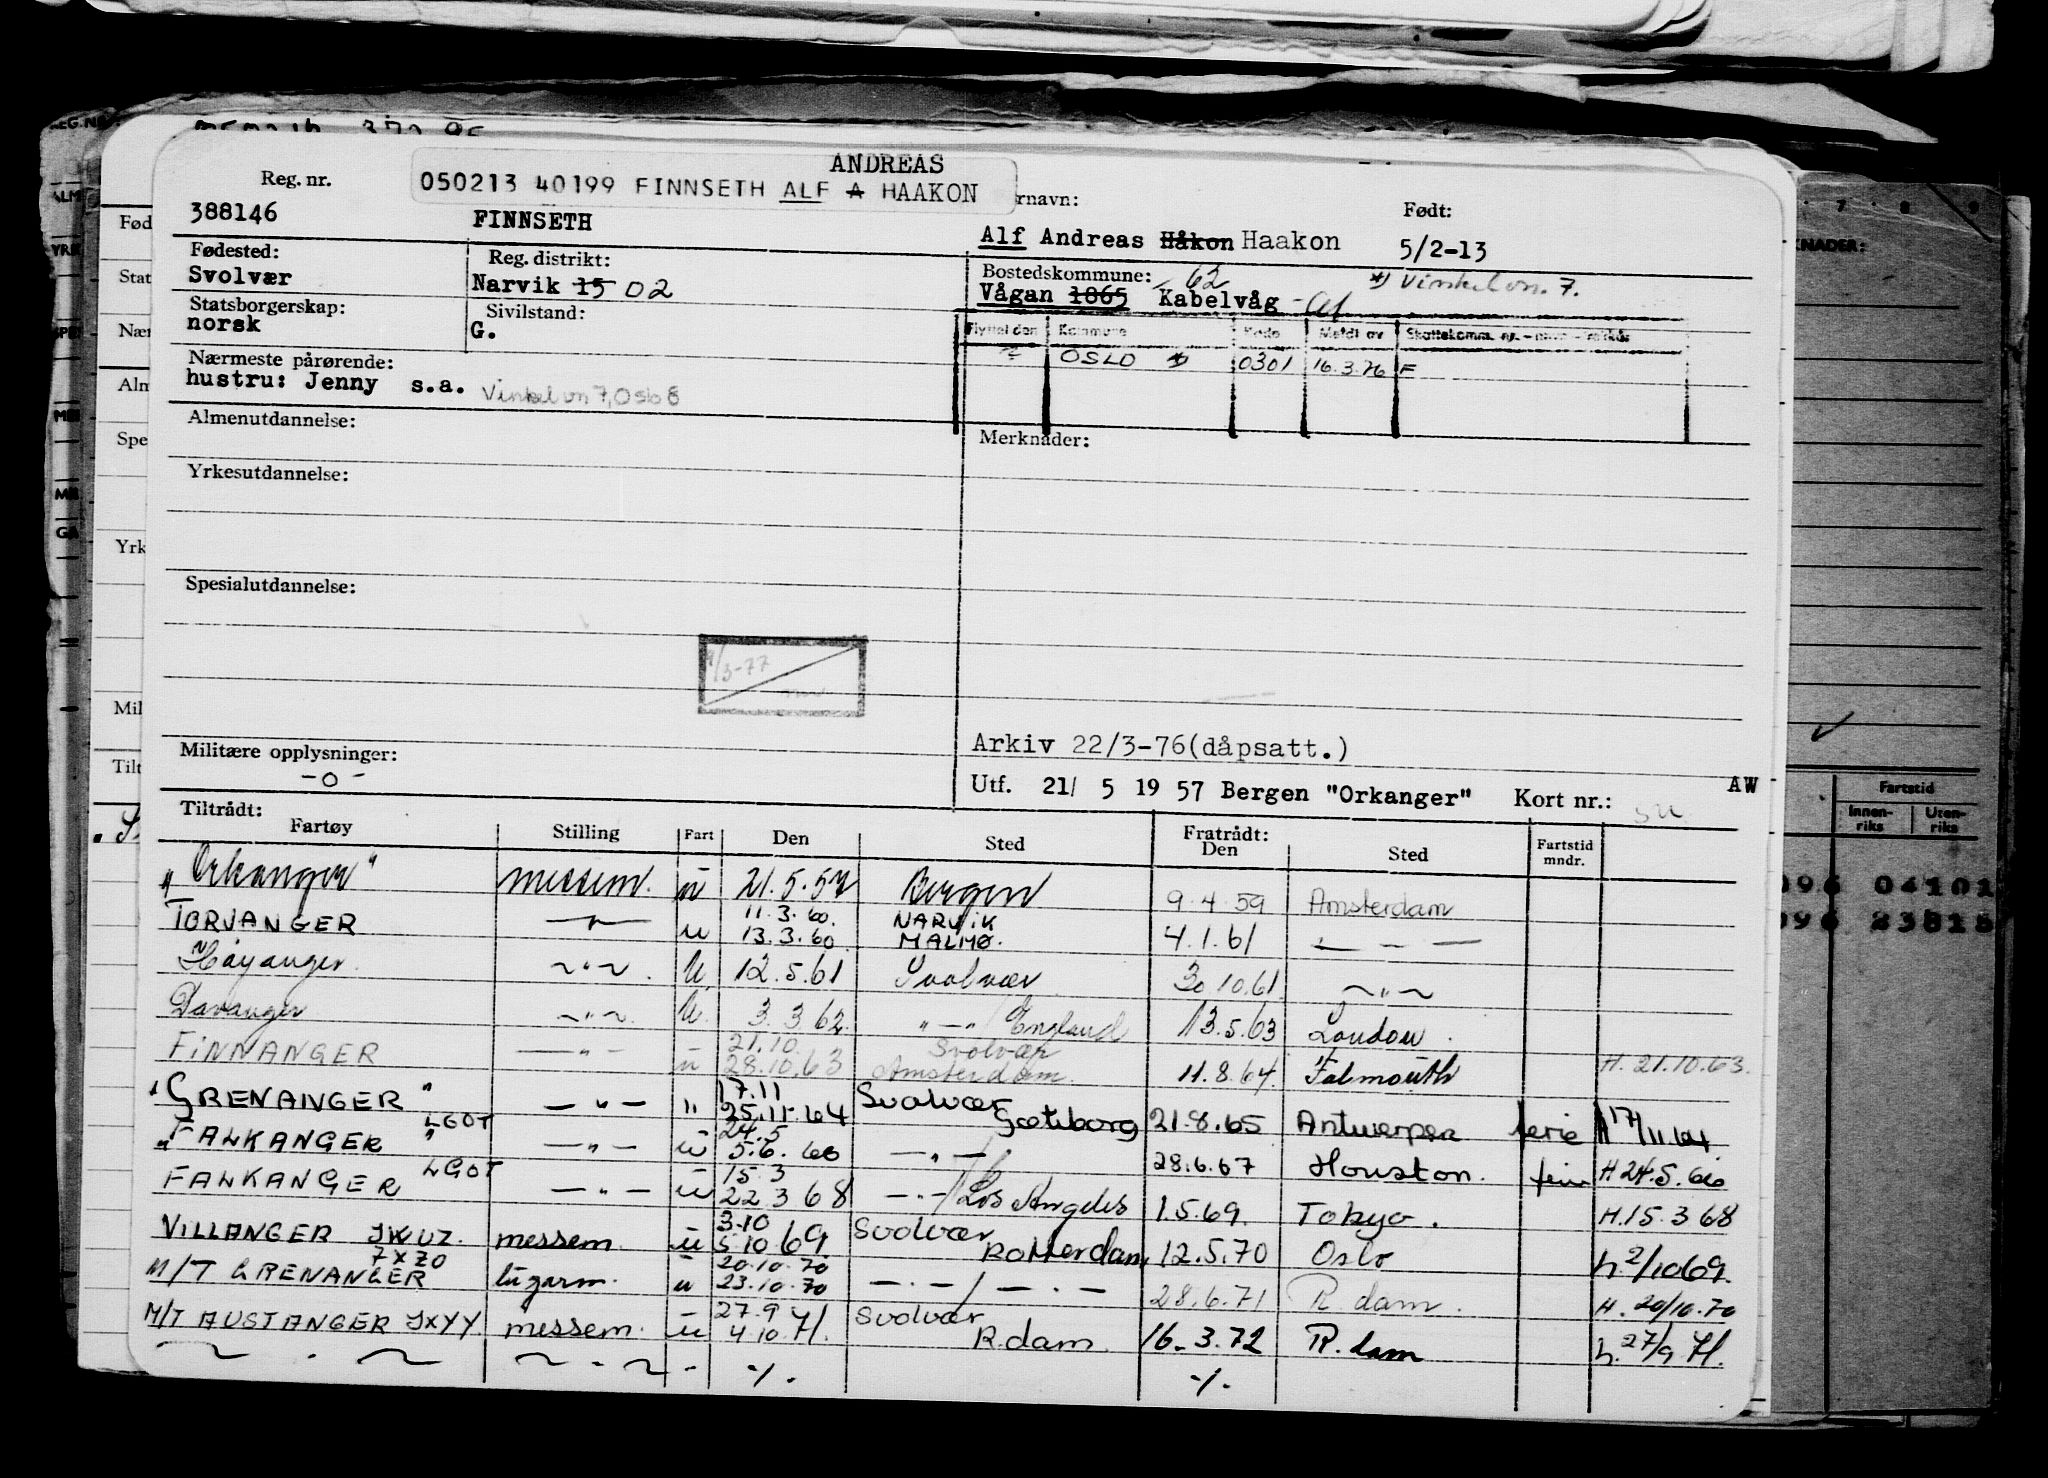 ANDREAS
050213 40199 FINNSETH ALF A HAAKON
Reg. nr.
388146
FINNSETH
rnavn:
Alf Andreas Håkon Haakon
Født:
5/2-13
Fødested:
Svolvær
Reg. distrikt:
Narvik 15 02
Bostedskommune:
Vågan 1865 Kabelvåg
62
*) Vinkelvn. 7.
Statsborgerskap:
norsk
Sivilstand:
G.
Flyttet den Kommune Kode Meldt av
OSLO *) 0301 16.3.76 F
Nærmeste pårørende:
hustru: Jenny s.a. Vinkelvn 7, Oslo 8
Almenutdannelse:
Merknader:
Yrkesutdannelse:
Spesialutdannelse:
Militære opplysninger:
-0-
Arkiv 22/3-76(dåpsatt.)
Utf. 21/ 5 19 57 Bergen "Orkanger" Kort nr.:
AW
Tiltrådt:
Fartøy Stilling Fart Den Sted Fratrådt: Den Sted Fartstid mndr.
"Orkanger" messem. u 21.5.57 Bergen 9.4.59 Amsterdam
TORJANGER —"— u 11.3.60. 13.3.60 NARVIK MALMØ. 4.1.61 — - —
Høyanger ~"~. U. 12.5.61 Svolvær 30.10.61 ~"~
Davanger ~"~. U. 3.3.62. "—"/England 13.5.63 London.
FINNANGER —"— u 21.10. 28.10.63 Svolvær Amsterdam. 11.8.64. Falmouth H. 21.10.63.
"GRENANGER" —"— " 17.11 25.11.64 Svolvær Gøteborg 21.8.65 Antwerpen ferie H 17/11.64.
"FALKANGER" LGOT —"— u 24.5 5.6.66 —"—/ 28.6.67 Houston. H 24.5.66
FALKANGER LGOT —"— u 15.3 22 3 68 —"—/Los Angeles 1.5.69. Tokyo. H.15.3 68
VILLANGER JWUZ. messem. u 3.10 5.10 69. Svolvær Rotterdam, 12.5.70 Oslo h. 2/10 69.
M/T GRENANGER 7XZO lugarm. u 20.10.70 23.10.70 —.—/—.— 28.6.71 R dam. H. 20/10.70
M/T AUSTANGER JXYY messem. u 27.9 4.10.71. Svolvær R.dam. 16.3.72 R.dam h. 27/9 71.
~ . ~ ~ - ~ - -/. -/.
Fød
Stat
Nær
Alm
Spe
Yrk
Mil
Tilt
7 8 9
KNADER:
Fartstid
Innen-riks Uten-riks
096 04101
096 23815